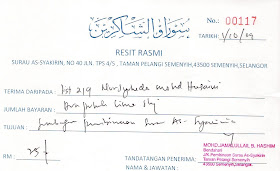 سوراو الشاكرين
No.: 00117
TARIKH: 1/10/09
RESIT RASMI
SURAU AS-SYAKIRIN, NO 40 JLN. TPS 4/5, TAMAN PELANGI SEMENYIH, 43500 SEMENYIH, SELANGOR
TERIMA DARIPADA: lot 219 Nursyuhada mohd Husaini
JUMLAH BAYARAN: Dua puluh lima shj
TUJUAN: pembinaan
RM: 25/
MOHD JAMALULLAIL B. HASHIM
Bendahari
JK Pembinaan Surau As-Syakirin
Taman Pelangi Semenyih
43500 Semenyih
TANDATANGAN PENERIMA:
NAMA & JAWATAN: